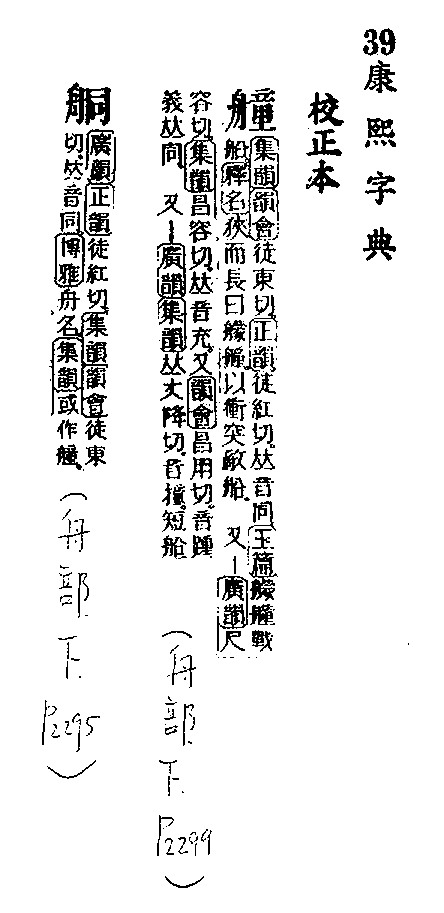 39康熙字典
校正本
艟集韻韻會徒東切正韻徒紅切𠀤音同玉篇艨艟戰
船釋名狹而長曰艨艟以衝突敵船 又一廣韻尺
容切集韻昌容切𠀤音充又韻會昌用切音踵
義𠀤同 又一廣韻集韻𠀤丈降切音撞短船
(舟部下P2299)
舸廣韻正韻徒紅切集韻韻會徒東
切𠀤音同博雅舟名集韻或作艟
(舟部下P2295)